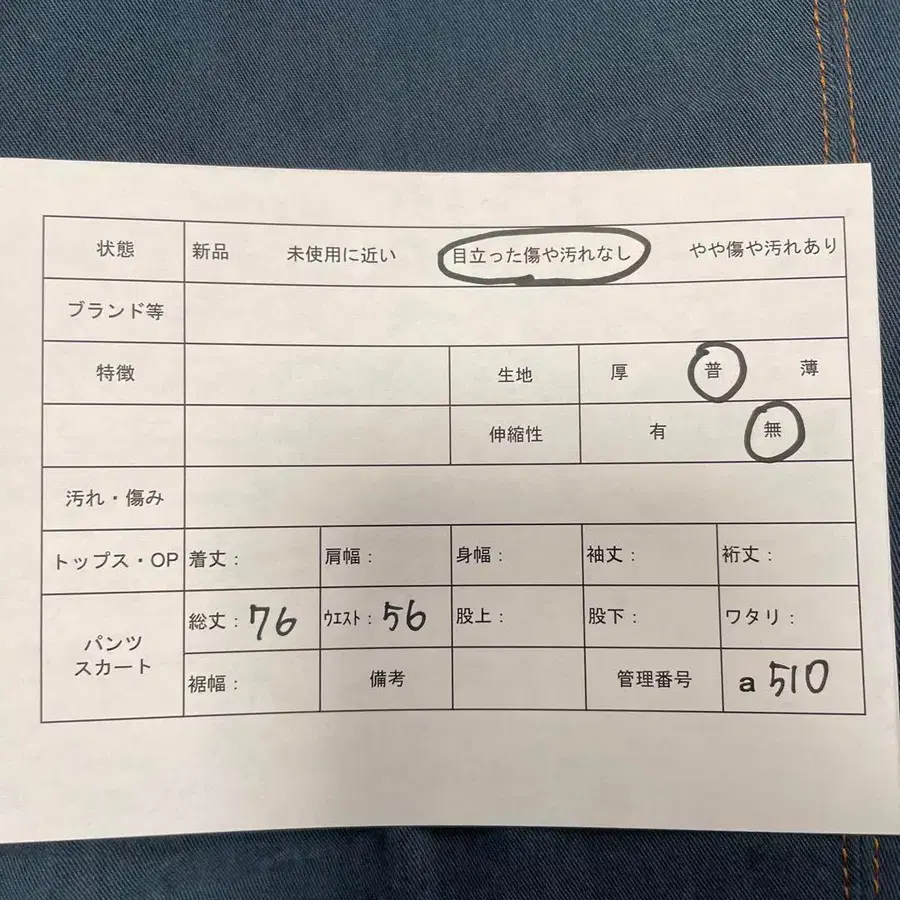 状態 新品 未使用に近い 目立った傷や汚れなし やや傷や汚れあり
ブランド等
特徴 生地 厚 普 薄
伸縮性 有 無
汚れ・傷み
トップス・OP 着丈: 肩幅: 身幅: 袖丈: 裄丈:
パンツ
スカート
総丈:76 ウエスト:56 股上: 股下: ワタリ:
裾幅: 備考 管理番号 a 510